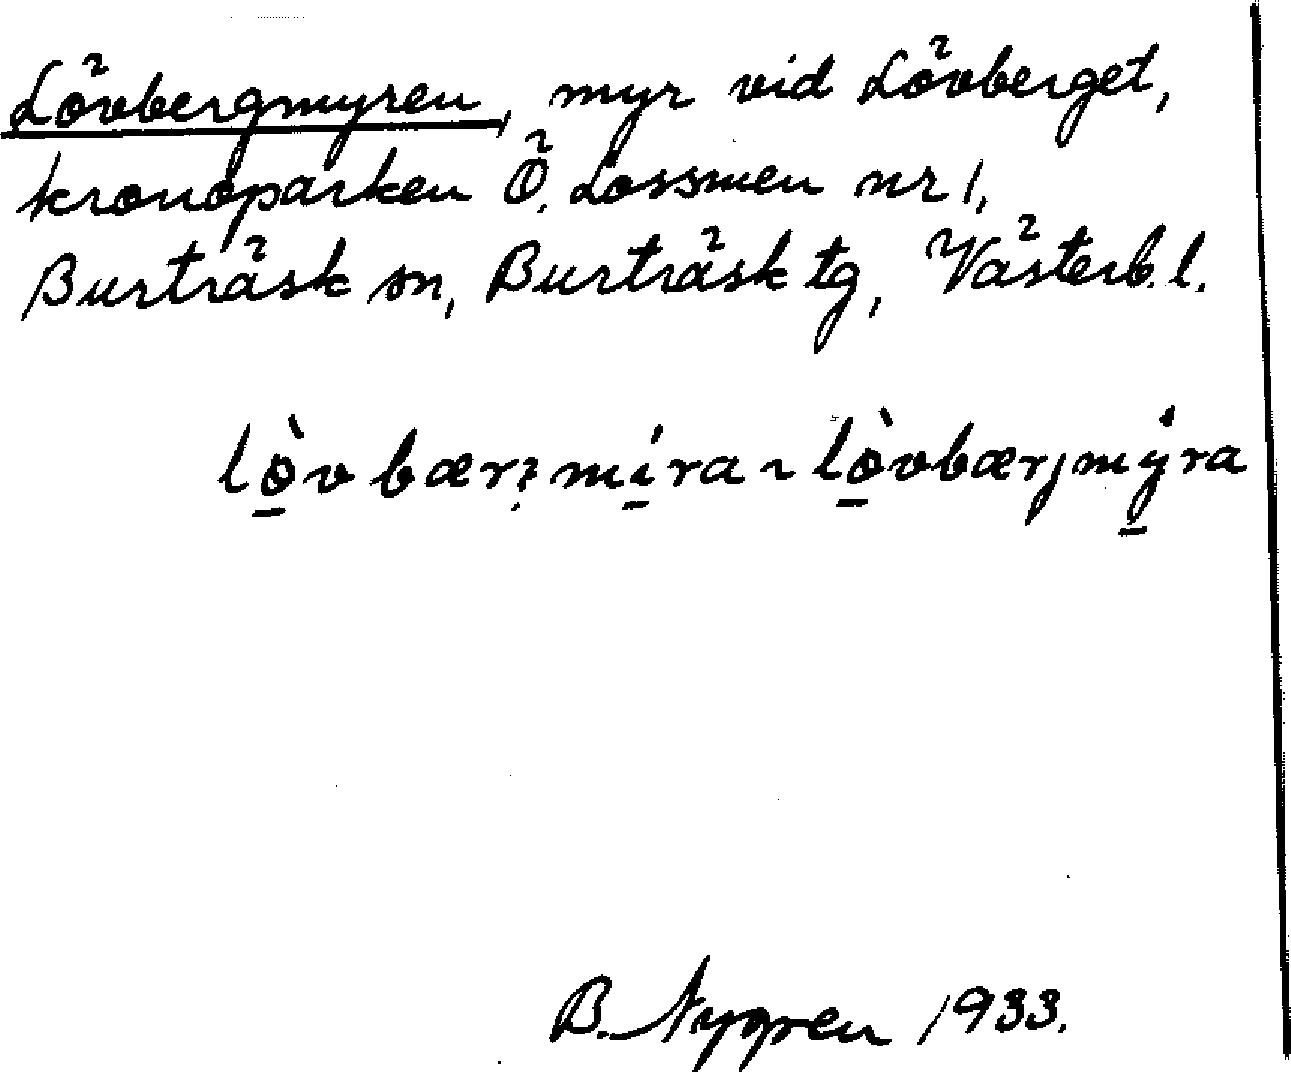 Lövbergmyren, myr vid Lövberget,
kronoparken Ö. Lossmen nr 1,
Burträsk sn, Burträsk tg, Västerb. l.
lò̲vbærjmí̲ra ~ lò̲vbærjmý̲ra
B. Nygren 1933.